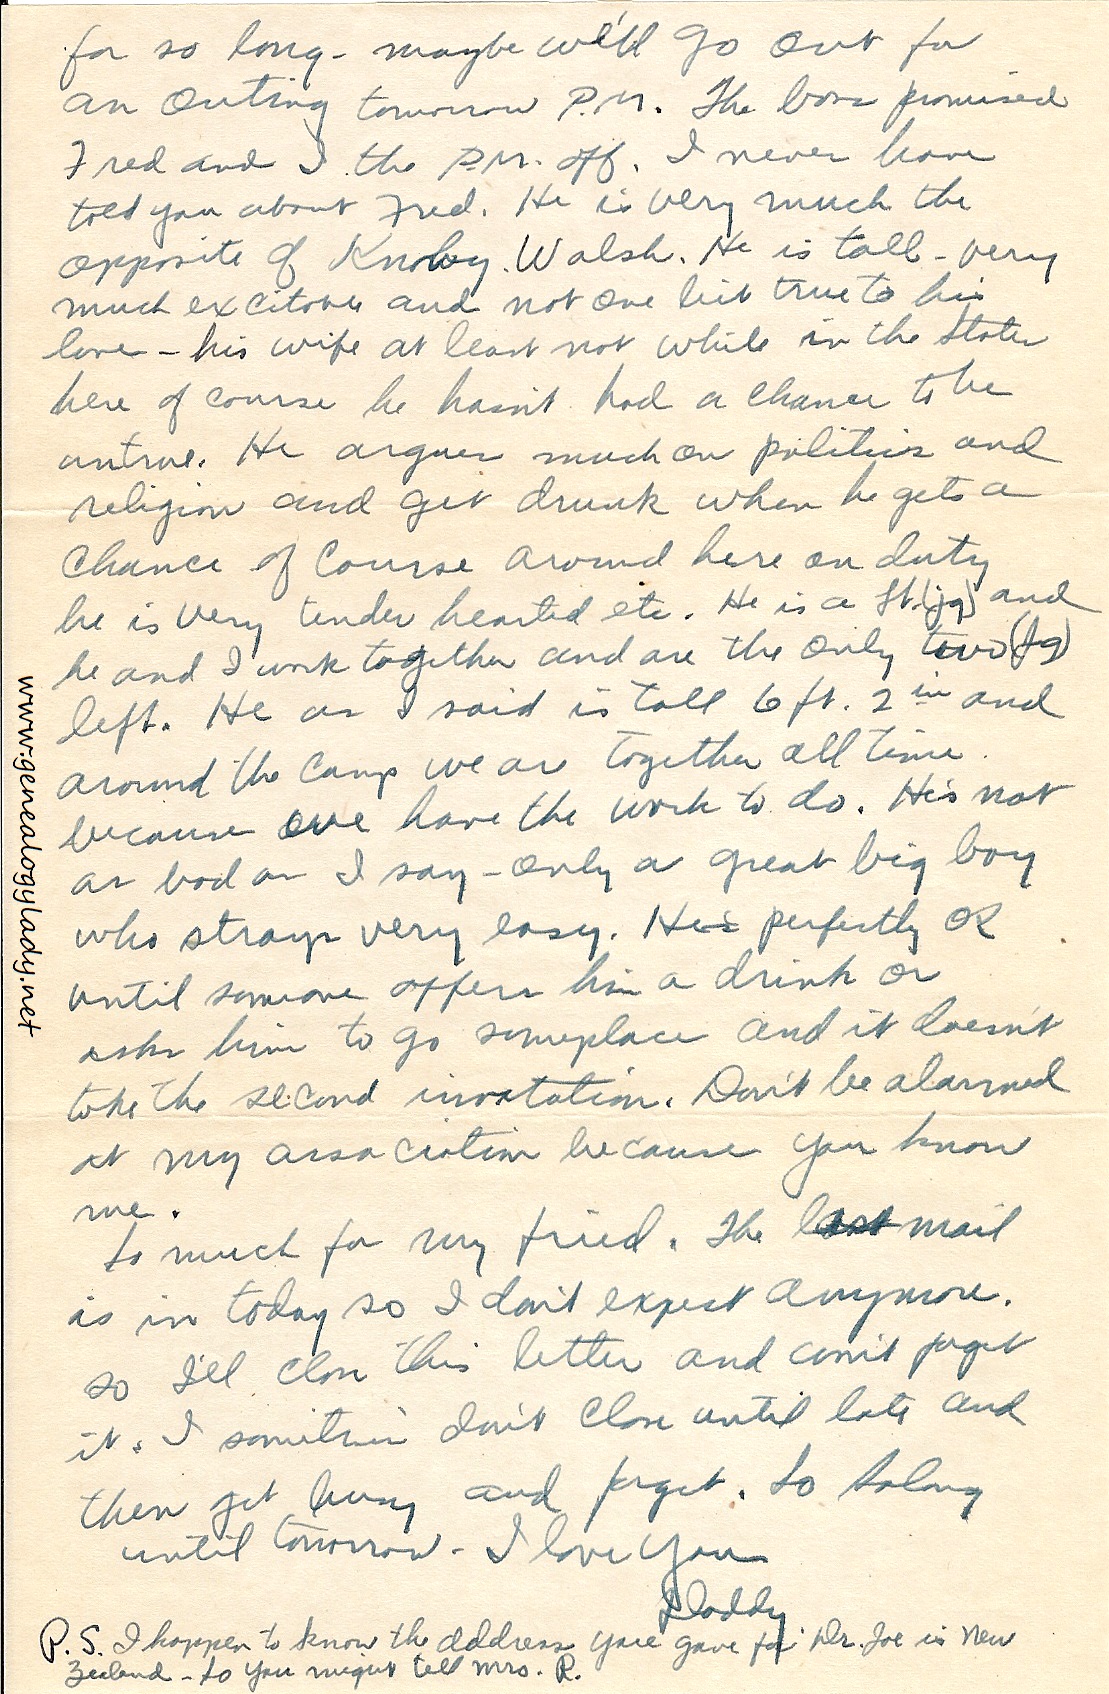 for so long - maybe we'll go out for
an outing tomorrow P.M. The boss promised
Fred and I the P.M. off. I never have
told you about Fred. He is very much the
opposite of Knobby Walsh. He is tall - very
much excitable and not one bit true to his
love - his wife at least not while in the States
here of course he hasn't had a chance to be
untrue. He argues much on politics and
religion and get drunk when he gets a
chance of course around here on duty
he is very tender hearted etc. He is a Lt.(jg) and
he and I work together and are the only two (jg)
left. He as I said is tall 6 ft. 2 in and
around the camp we are together all time
because we have the work to do. He's not
as bad as I say - only a great big boy
who strays very easy. He's perfectly OK
until someone offers him a drink or
asks him to go someplace and it doesn't
take the second invatation. Don't be alarmed
at my association because you know
me.
So much for my fried. The last mail
is in today so I don't expect anymore.
so I'll close this letter and won't forget
it. I sometimes don't close until late and
then get busy and forget. So solong
until tomorrow - I love you
Daddy
P.S. I happen to know the address you gave for Dr. Joe is New
Zealand - so you might tell Mrs. R.
www.genealogylady.net